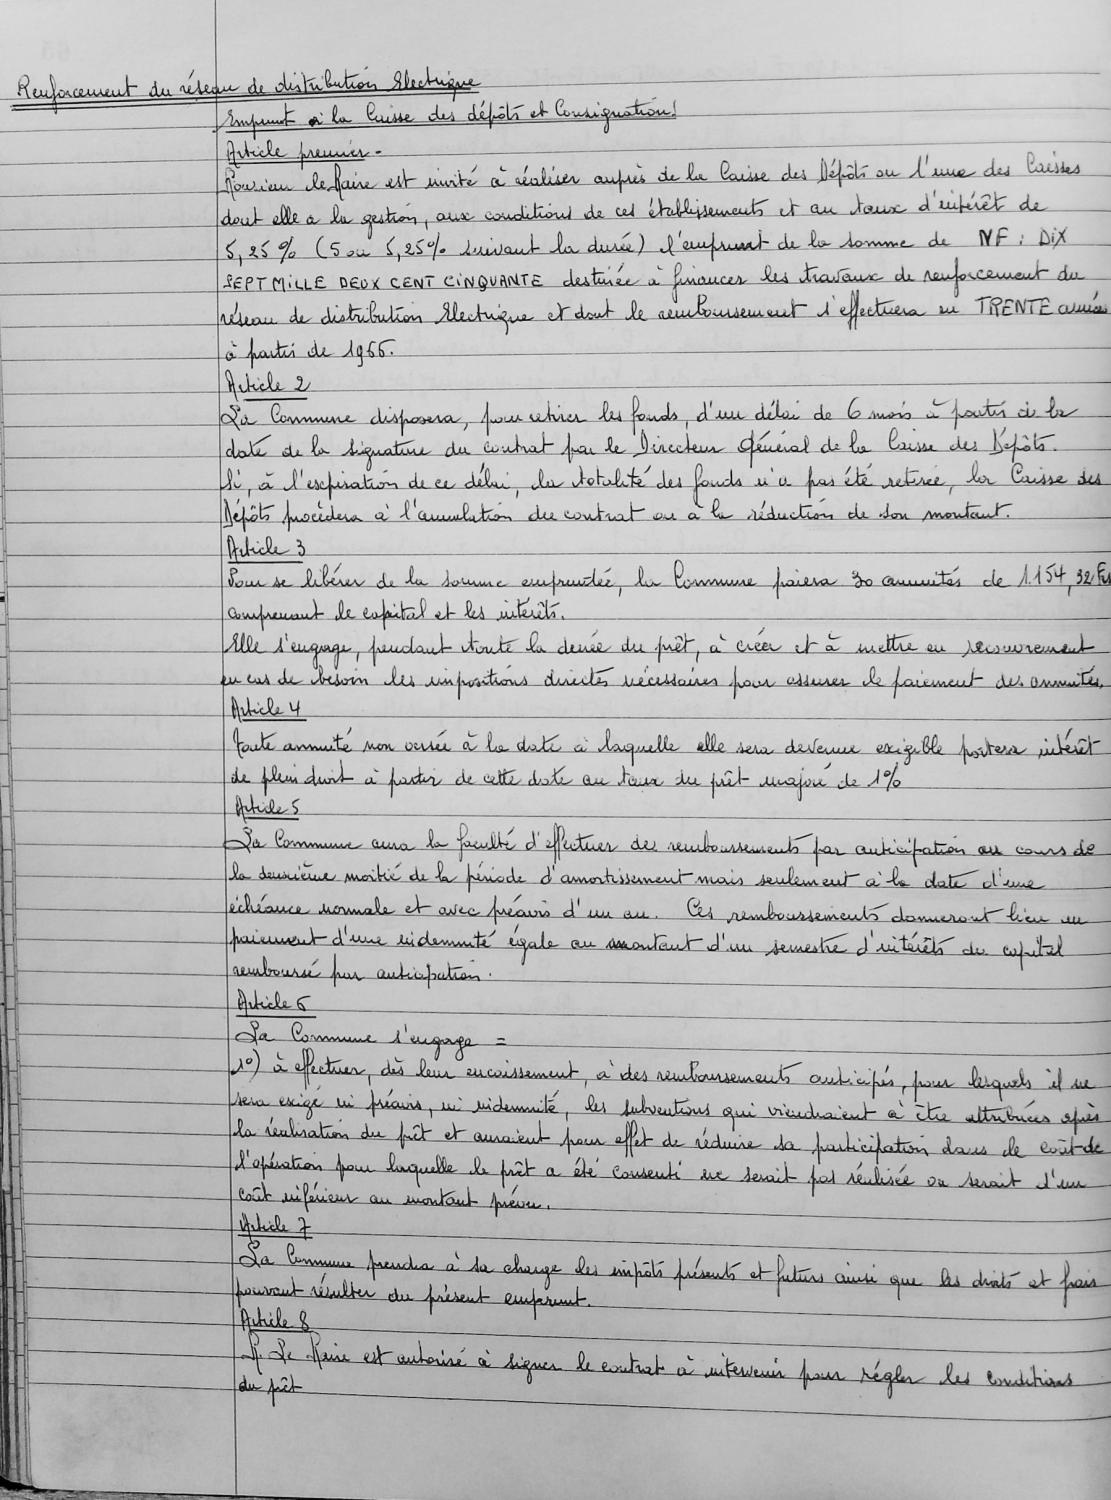 Renforcement du réseau de distribution Electrique
Emprunt à la Caisse des dépôts et Consignations
Article premier -
Monsieur le Maire est invité à réaliser auprès de la Caisse des Dépôts ou l'une des Caisses
dont elle a la gestion, aux conditions de ces établissements et au taux d'intérêt de
5,25 % (5 ou 5,25% suivant la durée) l'emprunt de la somme de NF : DIX
SEPT MILLE DEUX CENT CINQUANTE destinée à financer les travaux de renforcement du
réseau de distribution Electrique et dont le remboursement s'effectuera en TRENTE années
à partir de 1966.
Article 2
La Commune disposera, pour retirer les fonds, d'un délai de 6 mois à partir de la
date de la signature du contrat par le Directeur Général de la Caisse des Dépôts.
Si, à l'expiration de ce délai, la totalité des fonds n'a pas été retirée, la Caisse des
Dépôts procèdera à l'annulation du contrat ou à la réduction de son montant.
Article 3
Pour se libérer de la somme empruntée, la Commune paiera 30 annuités de 1.154,32 Frs
comprenant le capital et les intérêts.
Elle s'engage, pendant toute la durée du prêt, à créer et à mettre en recouvrement
en cas de besoin les impositions directes nécessaires pour assurer le paiement des annuités.
Article 4
Toute annuité non versée à la date à laquelle elle sera devenue exigible portera intérêt
de plein droit à partir de cette date au taux du prêt majoré de 1%
Article 5
La Commune aura la faculté d'effectuer des remboursements par anticipation au cours de
la deuxième moitié de la période d'amortissement mais seulement à la date d'une
échéance normale et avec préavis d'un an. Ces remboursements donneront lieu au
paiement d'une indemnité égale au montant d'un semestre d'intérêts du capital
remboursé par anticipation.
Article 6
La Commune s'engage =
1°) à effectuer, dès leur encaissement, à des remboursements anticipés, pour lesquels il ne
sera exigé ni préavis, ni indemnité, les subventions qui viendraient à être attribuées après
la réalisation du prêt et auraient pour effet de réduire sa participation dans le coût de
l'opération pour laquelle le prêt a été consenti ne serait pas réalisée ou serait d'un
coût inférieur au montant prévu.
Article 7
La Commune prendra à sa charge les impôts présents et futurs ainsi que les droits et frais
pouvant résulter du présent emprunt.
Article 8
M. Le Maire est autorisé à signer le contrat à intervenir pour régler les conditions
du prêt